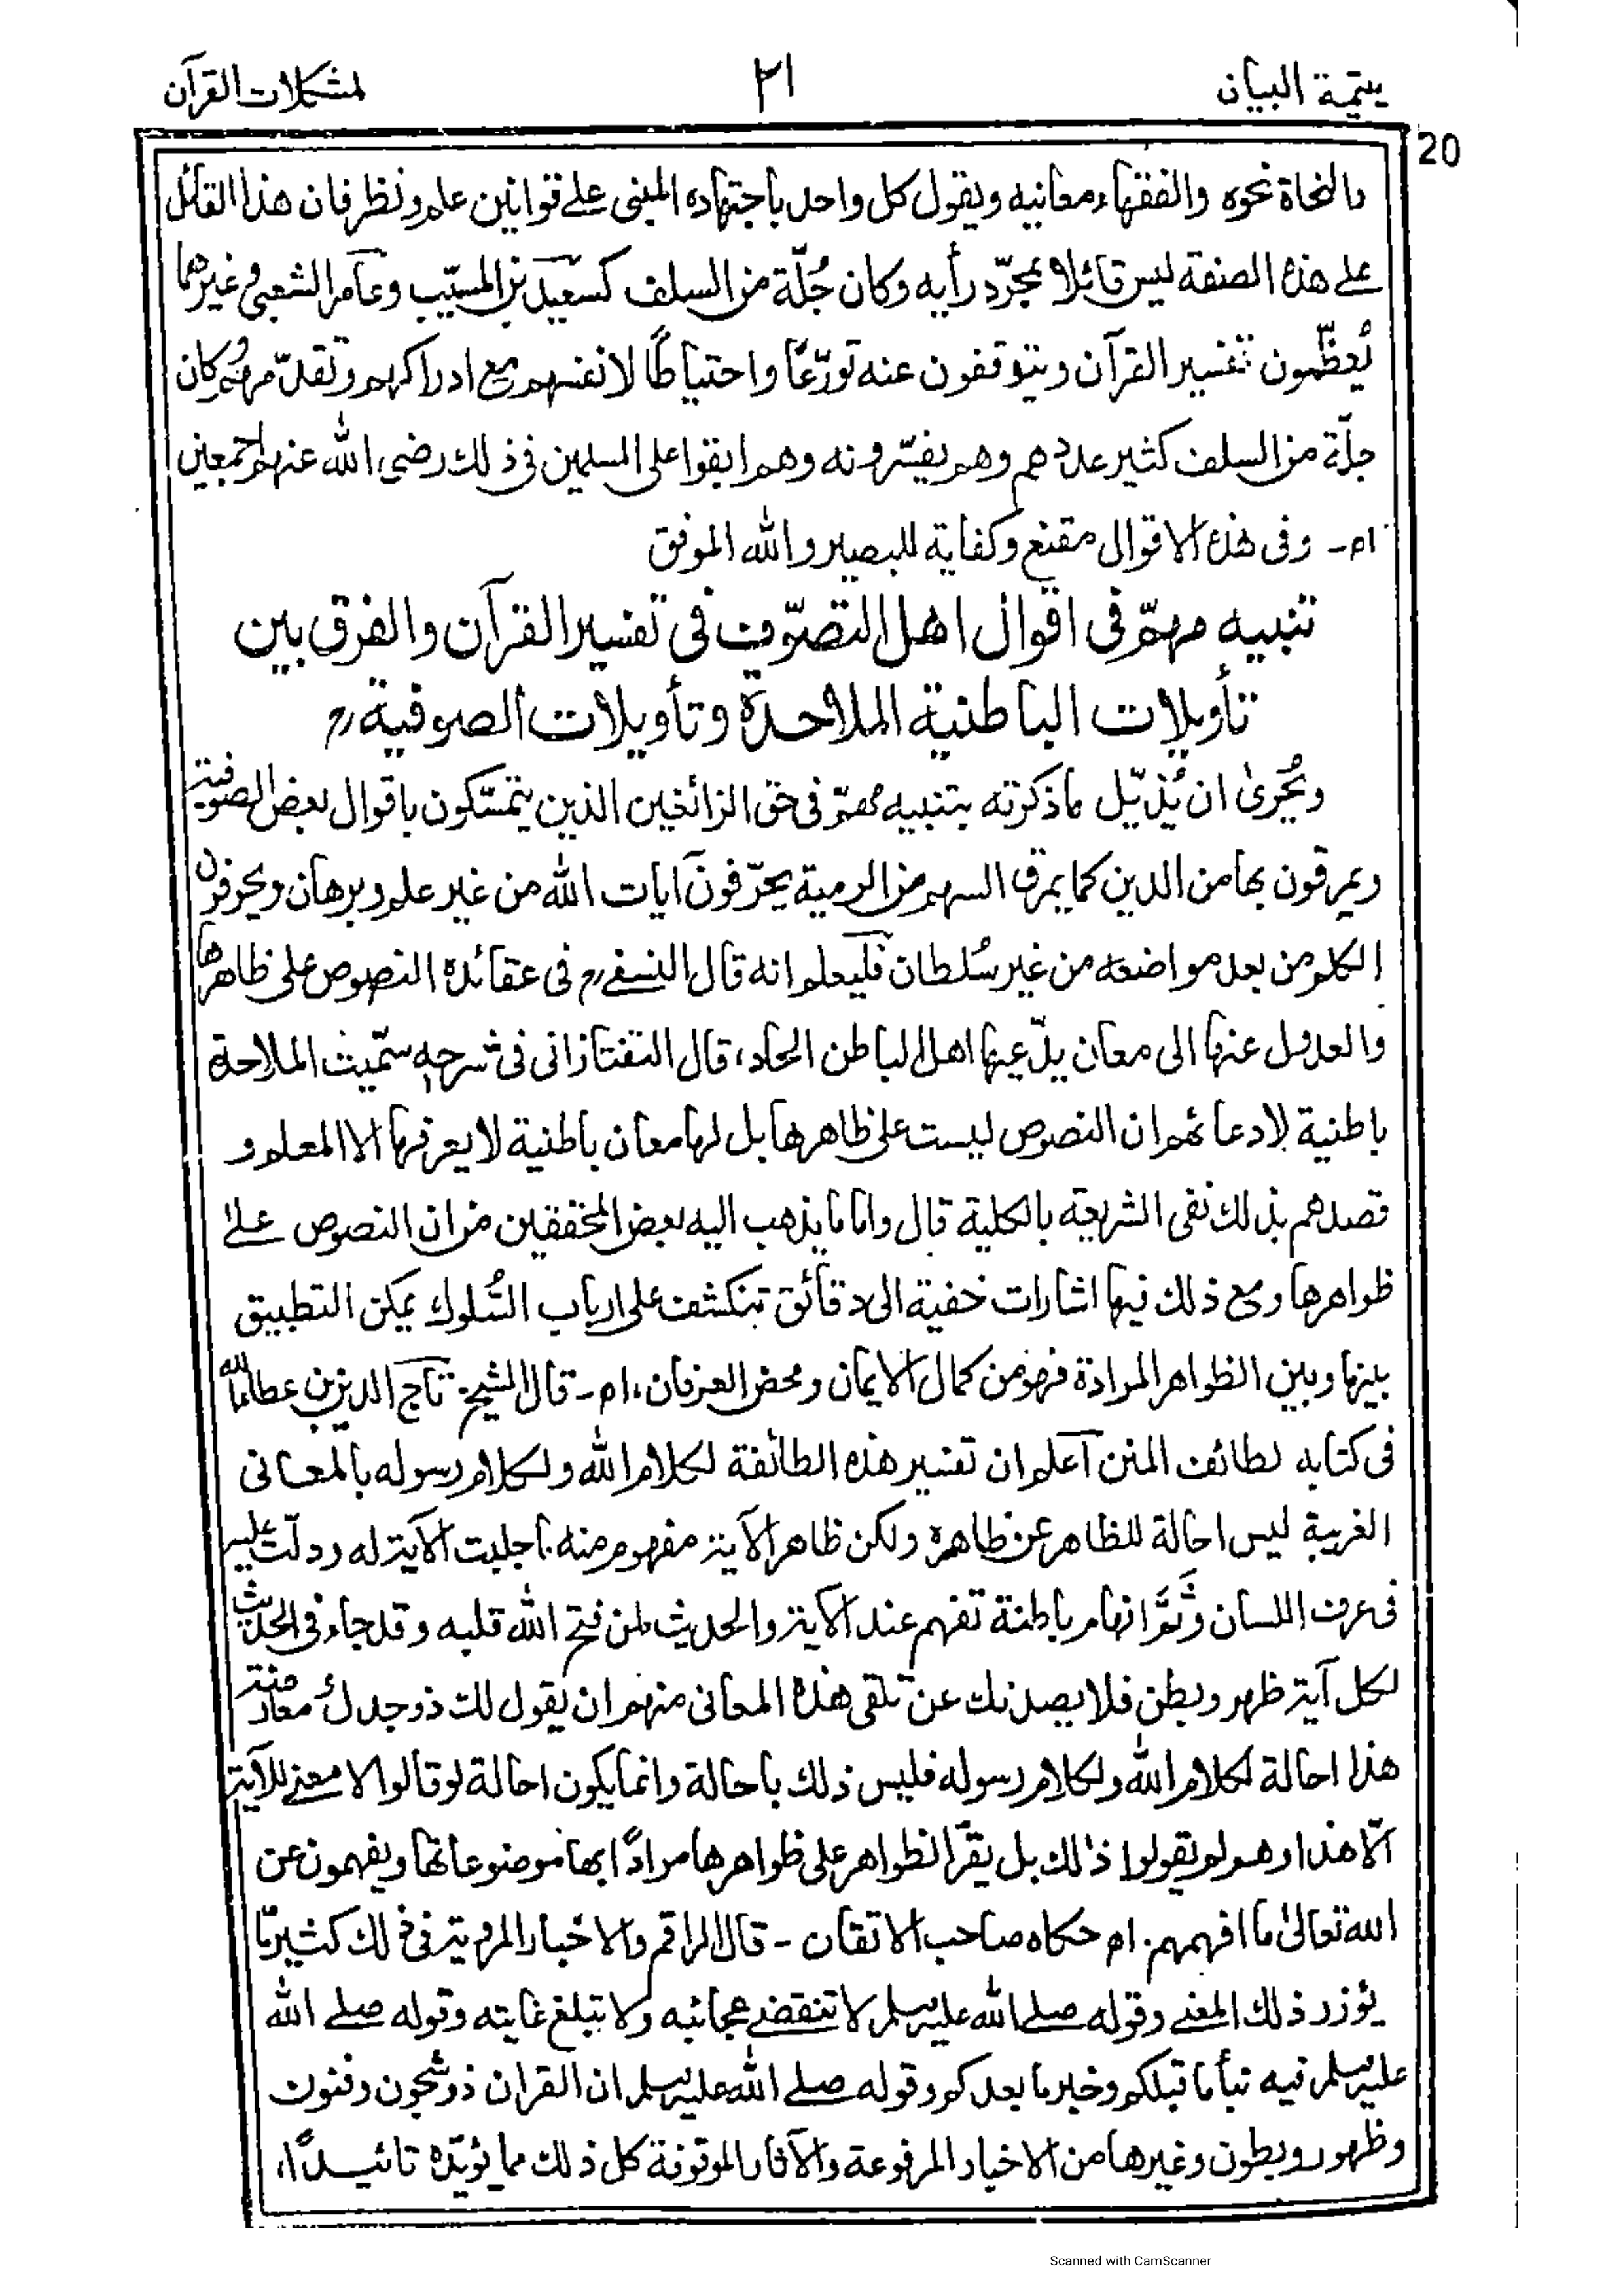 يتيمة البيان
٢١
لمشكلات القرآن
20
والنحاة نحوه والفقهاء معانيه ويقول كل واحد باجتهاده المبنى على قوانين علم ونظر فان هذا القائل
على هذه الصفة ليس قائلا بمجرّد رأيه وكان جُلّة من السلف كسعيد بن المسيّب وعامر الشعبى وغيرهما
يُعظّمون تفسير القرآن ويتوقفون عنه تورّعًا واحتياطًا لانفسهم مع ادراكهم وتقدّمهم وكان
جلّة من السلف كثير عددهم وهم يفسّرونه وهم ابقوا على المسلمين فى ذلك رضى الله عنهم اجمعين
اه- وفى هذه الاقوال مقنع وكفاية للبصير والله الموفق
تنبيه مهمّ فى اقوال اهل التصوّف فى تفسير القرآن والفرق بين
تأويلات الباطنية الملاحدة وتأويلات الصوفية رح
ويُحرىٰ ان يُذيّل ما ذكرته بتنبيه مهمّ فى حق الزائغين الذين يتمسّكون باقوال بعض الصوفية
ويمرقون بها من الدين كما يمرق السهم من الرمية يحرّفون آيات الله من غير علم وبرهان ويحرفون
الكلم من بعد مواضعه من غير سُلطان فليعلم انه قال النسفى رح فى عقائده النصوص على ظاهرها
والعدول عنها الى معان يدّعيها اهل الباطن الحاد، قال التفتازانى فى شرحه سمّيت الملاحدة
باطنية لادعائهم ان النصوص ليست على ظاهرها بل لها معان باطنية لا يعرفها الا المعلم و
قصدهم بذلك نفى الشريعة بالكلية قال واما ما يذهب اليه بعض المحققين من ان النصوص على
ظواهرها ومع ذلك فيها اشارات خفية الى دقائق تنكشف على ارباب السُّلوك يمكن التطبيق
بينها وبين الظواهر المرادة فهو من كمال الايمان ومحض العرفان، اه- قال الشيخ تاج الدين بن عطاء الله
فى كتابه لطائف المنن اعلم ان تفسير هذه الطائفة لكلام الله ولكلام رسوله بالمعانى
الغريبة ليس احالة للظاهر عن ظاهره ولكن ظاهر الآية مفهوم منه ما جلبت الآية له ودلّت عليه
فى عرف اللسان وثَمَّ افهام باطنة تفهم عند الآية والحديث لمن فتح الله قلبه وقد جاء فى الحديث
لكل آية ظهر وبطن فلا يصدنك عن تلقى هذه المعانى منهم ان يقول لك ذو جدل ومعارضة
هذا احالة لكلام الله ولكلام رسوله فليس ذلك باحالة وانما يكون احالة لو قالوا لا معنى للآية
الّا هذا وهم لم يقولوا ذٰلك بل يقرّ الظواهر على ظواهرها مرادًا بها موضوعاتها ويفهمون عن
الله تعالىٰ ما افهمهم. اه حكاه صاحب الاتقان - قال الراقم والاخبار المروية فى ذلك كثيرة
يؤزر ذلك المعنى وقوله صلى الله عليه وسلم لا تنقضى عجائبه ولا تبلغ غايته وقوله صلى الله
عليه وسلم فيه نبأ ما قبلكم وخبر ما بعدكم وقوله صلى الله عليه وسلم ان القران ذو شجون وفنون
وظهور وبطون وغيرها من الاخبار المرفوعة والآثار الموقوفة كل ذلك مما يؤيّده تائيدًا،
Scanned with CamScanner